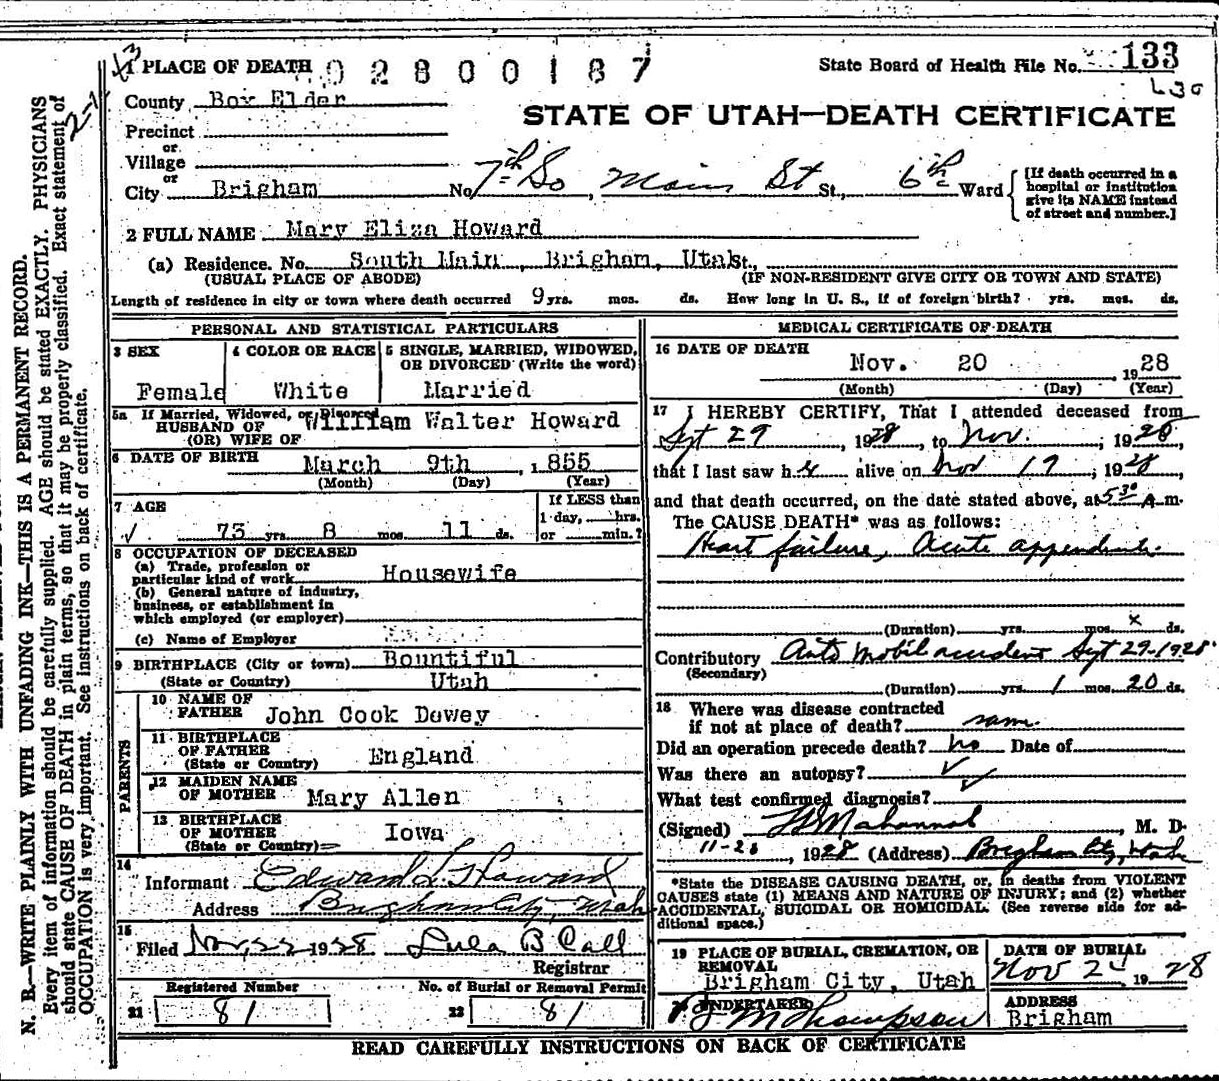 1 PLACE OF DEATH 02800187
State Board of Health File No. 133
County Box Elder
STATE OF UTAH—DEATH CERTIFICATE
Precinct
or
Village
or
City Brigham No. 7th So, Main St St., 6th Ward
[If death occurred in a hospital or institution give its NAME instead of street and number.]
2 FULL NAME Mary Eliza Howard
(a) Residence. No. South Main, Brigham, Utah St.,
(USUAL PLACE OF ABODE) (IF NON-RESIDENT GIVE CITY OR TOWN AND STATE)
Length of residence in city or town where death occurred 9 yrs. mos. ds. How long in U. S., if of foreign birth? yrs. mos. ds.
PERSONAL AND STATISTICAL PARTICULARS
3 SEX
Female
4 COLOR OR RACE
White
5 SINGLE, MARRIED, WIDOWED,
OR DIVORCED (Write the word)
Married
5a If Married, Widowed, or Divorced
HUSBAND OF
(OR) WIFE OF
William Walter Howard
6 DATE OF BIRTH March 9th, 1855
(Month) (Day) (Year)
7 AGE
73 yrs. 8 mos. 11 ds.
If LESS than
1 day, hrs.
or min.?
8 OCCUPATION OF DECEASED
(a) Trade, profession or
particular kind of work Housewife
(b) General nature of industry,
business, or establishment in
which employed (or employer)
(c) Name of Employer
9 BIRTHPLACE (City or town) Bountiful
(State or Country) Utah
PARENTS
10 NAME OF
FATHER John Cook Dewey
11 BIRTHPLACE
OF FATHER England
(State or Country)
12 MAIDEN NAME
OF MOTHER Mary Allen
13 BIRTHPLACE
OF MOTHER Iowa
(State or Country)
14
Informant Edward L. Howard
Address Brigham City, Utah
15
Filed Nov, 22 1928 Lula B Call
Registrar
Registered Number
21 81
No. of Burial or Removal Permit
22 81
MEDICAL CERTIFICATE OF DEATH
16 DATE OF DEATH
Nov. 20 1928
(Month) (Day) (Year)
17 I HEREBY CERTIFY, That I attended deceased from
Sept 29, 1928, to Nov., 1928,
that I last saw her alive on Nov 19, 1928,
and that death occurred, on the date stated above, at 5 30 A.m.
The CAUSE DEATH* was as follows:
Heart failure, Acute
(Duration) yrs. mos. x ds.
Contributory Auto mobil accident Sept 29-1928
(Secondary)
(Duration) yrs. 1 mos. 20 ds.
18 Where was disease contracted
if not at place of death? same.
Did an operation precede death? no Date of
Was there an autopsy?
What test confirmed diagnosis?
(Signed) M. D.
, 1928 (Address) Brigham City, Utah
*State the DISEASE CAUSING DEATH, or, in deaths from VIOLENT
CAUSES state (1) MEANS AND NATURE OF INJURY; and (2) whether
ACCIDENTAL, SUICIDAL OR HOMICIDAL. (See reverse side for ad-
ditional space.)
19 PLACE OF BURIAL, CREMATION, OR
REMOVAL
Brigham City, Utah
DATE OF BURIAL
Nov 1928
UNDERTAKER
Thompson
ADDRESS
Brigham
READ CAREFULLY INSTRUCTIONS ON BACK OF CERTIFICATE
N. B.—WRITE PLAINLY WITH UNFADING INK—THIS IS A PERMANENT RECORD.
Every item of information should be carefully supplied. AGE should be stated EXACTLY. PHYSICIANS
should state CAUSE OF DEATH in plain terms, so that it may be properly classified. Exact statement of
OCCUPATION is very important. See instructions on back of certificate.